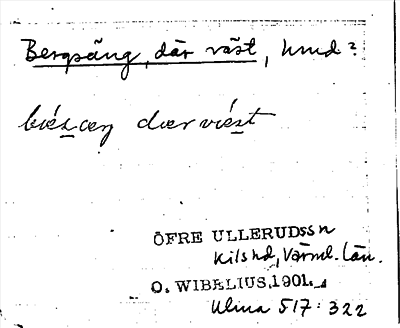 Bergsäng, där väst, hmd?
dær
ÖFRE ULLERUDssn
Kils hd, Värml. län.
O. WIBELIUS, 1901.
Ulma 517:322